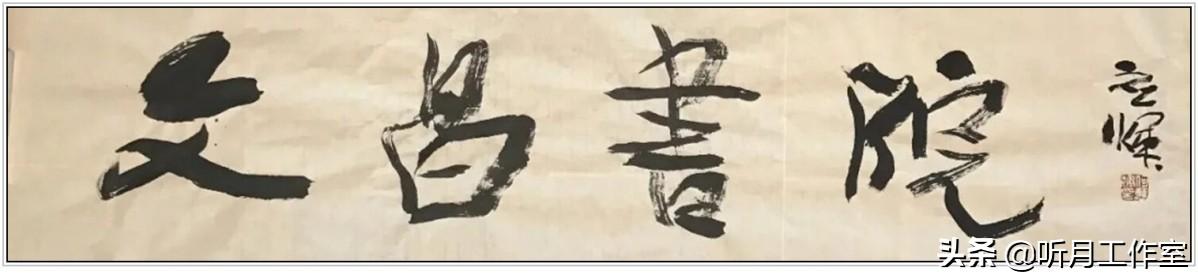 文昌書院
头条 @听月工作室